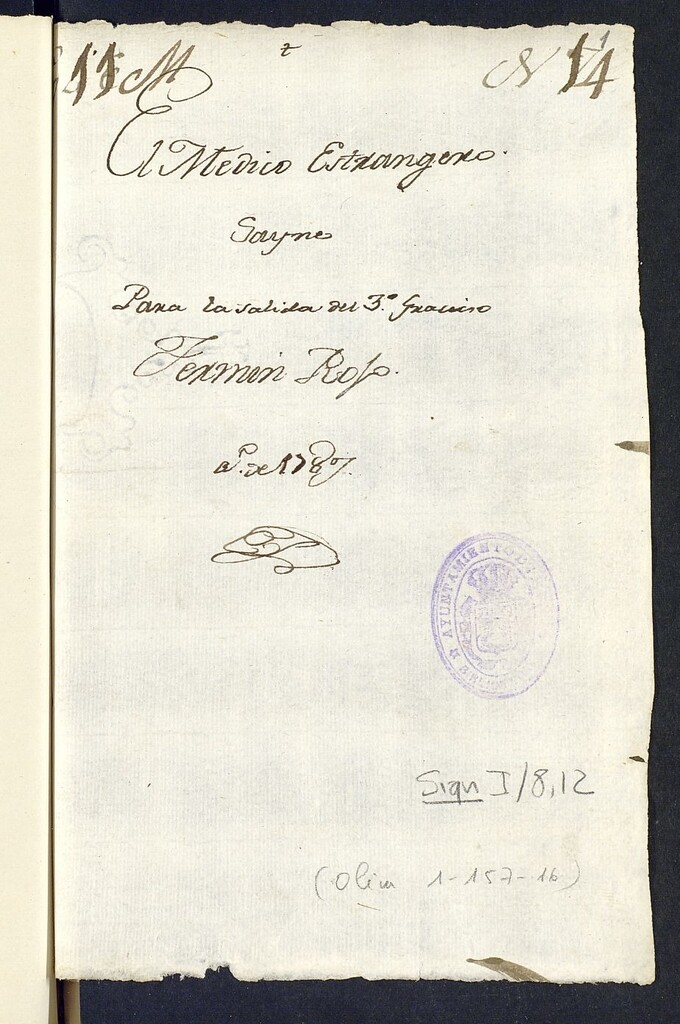 11 M
N 14
El Medico Estrangero.
Sayne
Para la salida del 3.º Gracioso
Fermin Rojo.
a.º de 1787.
AYUNTAMIENTO DE
BIBLIO
Sign I/8,12
(Olim 1-157-16)